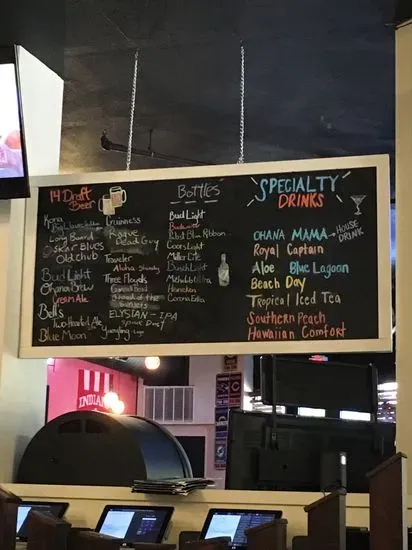 14 Draft
Beer
Kona
Big Wave
Long Board
SKAR BLUES
Old chub
Bud Light
Ohana Brew
Cream Ale
Bells
Two-Hearted Ale
Blue Moon
Guinness
Rogue
Dead Guy
Traveler
Aloha Shandy
Three Floyds
ELYSIAN - IPA
Space Dust
Yuengling Lager
BOTTLES
Bud Light
Budweiser
Pabst Blue Ribbon
Coors Light
Miller Lite
Busch Light
Michelob Ultra
Heineken
Corona Extra
SPECIALTY
DRINKS
OHANA MAMA
HOUSE
DRINK
Royal Captain
Aloe Blue Lagoon
Beach Day
Tropical Iced Tea
Southern Peach
Hawaiian Comfort
INDIAN